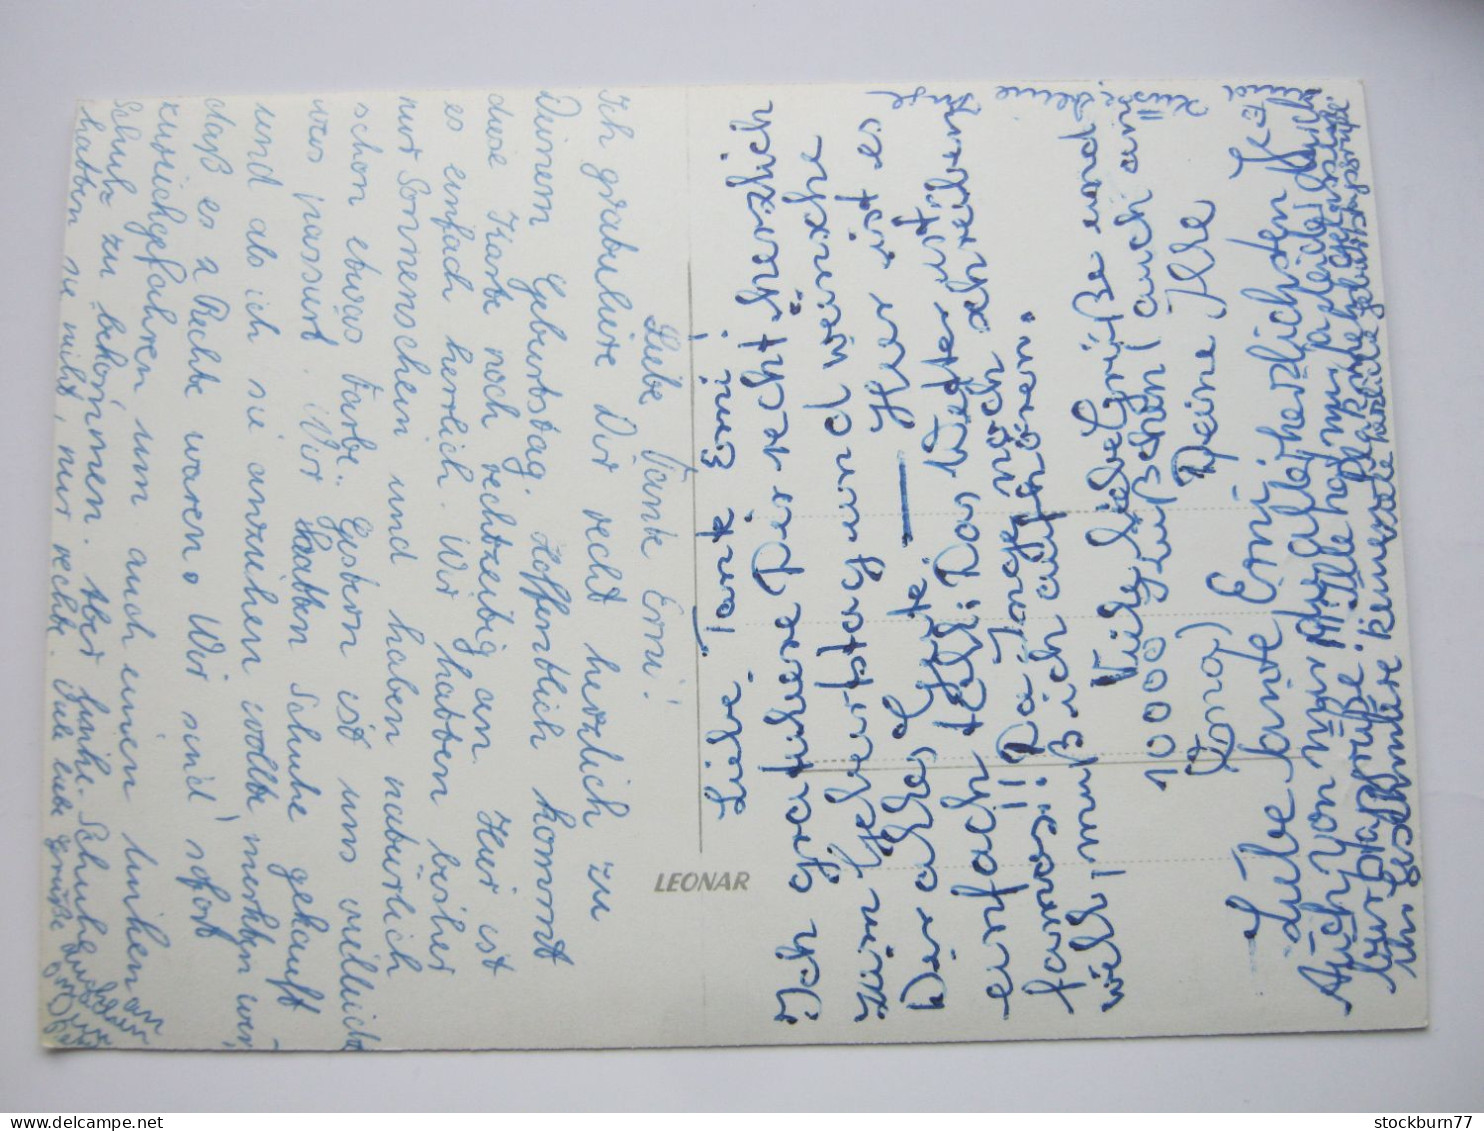 Liebe Tante Erni!
Ich gratuliere Dir recht herzlich zu
Deinem Geburtstag. Hoffentlich kommt
diese Karte noch rechtzeitig an. Hier ist
es einfach herrlich. Wir hatten bisher
nur Sonnenschein und haben natürlich
schon etwas Farbe. Gestern ist uns vielleicht
was passiert. Wir hatten Schuhe gekauft
und als ich sie anziehen wollte, merkten wir,
daß es 2 Rechte waren. Wir sind sofort
zurückgefahren um auch einen linken
Schuh zu bekommen. Aber linke Schuhe
hatten sie nicht, nur rechte. Viele liebe Grüße
LEONAR
Liebe Tante Erni!
Ich gratuliere Dir recht herzlich
zum Geburtstag und wünsche
Dir alles Gute. — Hier ist es
einfach toll: Das Wetter ist
famos!! Da Inge noch schreiben
will, muß ich aufhören.
Viele liebe Grüße und
10000 Küßchen (auch an
Oma) Deine Ilse
Liebe Tante Erni!
Auch von mir die allerherzlichsten